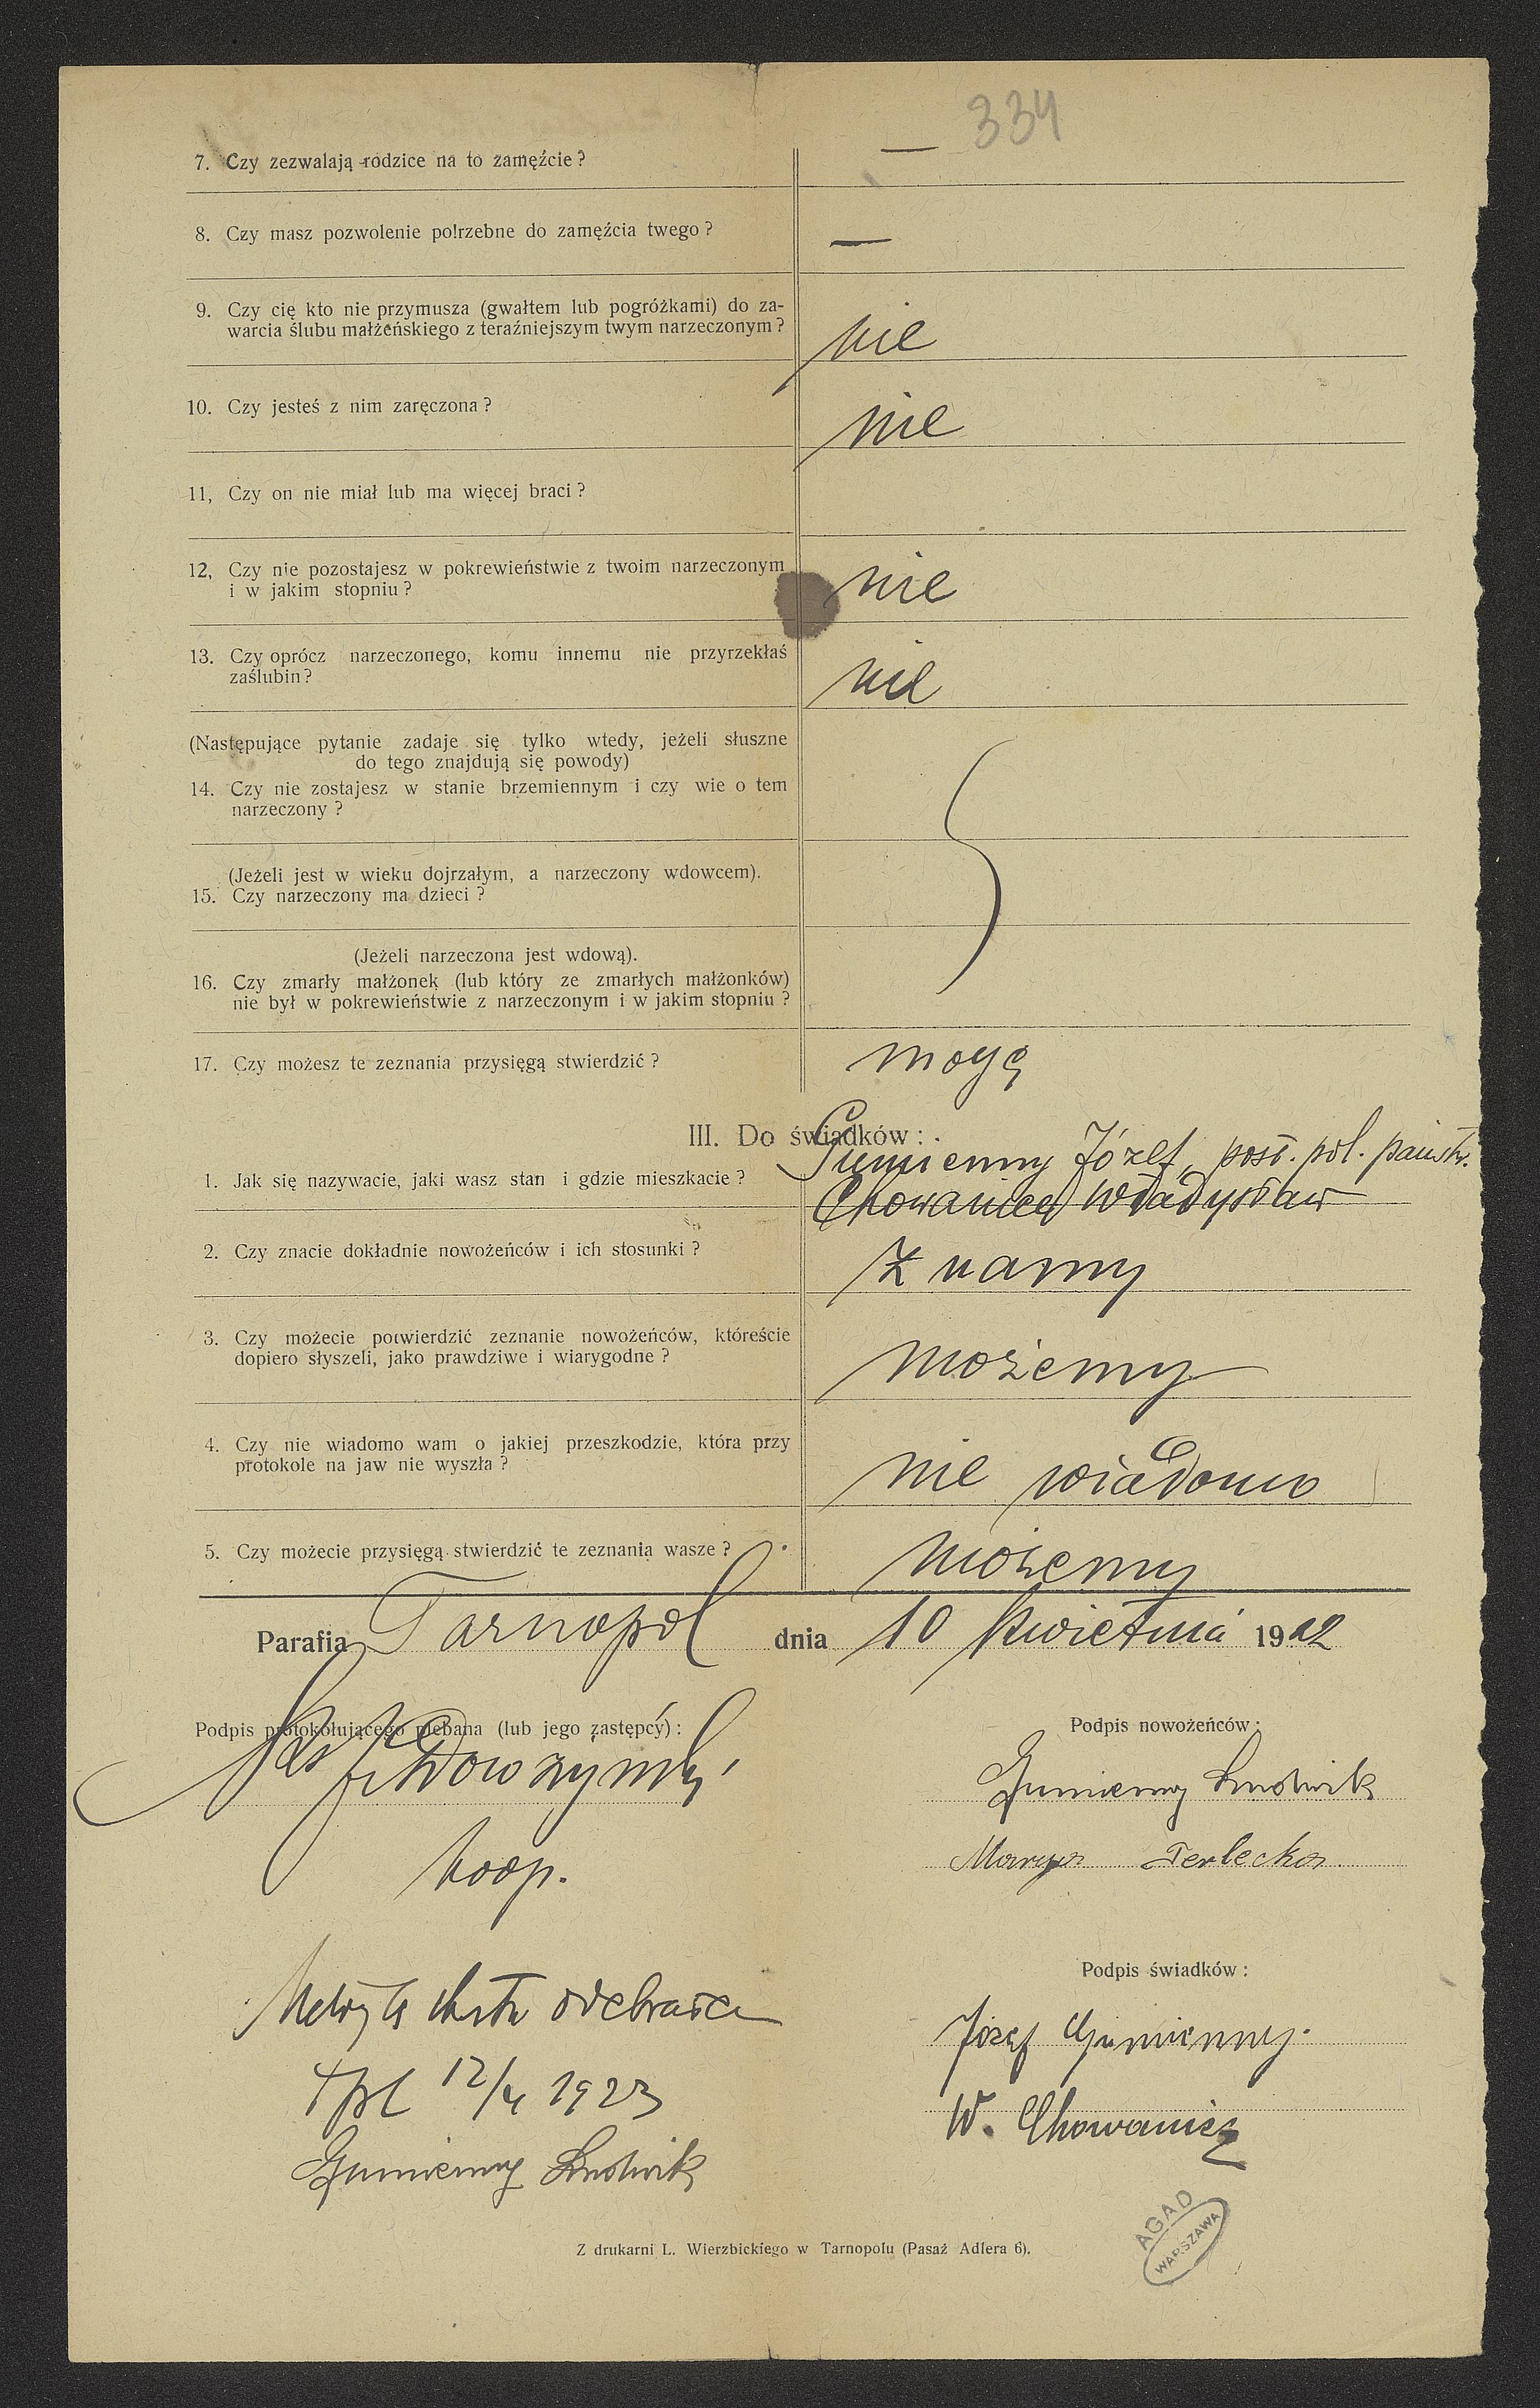 334
7. Czy zezwalają rodzice na to zamęźcie ? —
8. Czy masz pozwolenie polrzebne do zamęźcia twego ? —
9. Czy cię kto nie przymusza (gwałtem lub pogróżkami) do za-
warcia ślubu małżeńskiego z teraźniejszym twym narzeczonym ? nie
10. Czy jesteś z nim zaręczona ? nie
11, Czy on nie miał lub ma więcej braci ?
12, Czy nie pozostajesz w pokrewieństwie z twoim narzeczonym
i w jakim stopniu ? nie
13. Czy oprócz narzeczonego, komu innemu nie przyrzekłaś
zaślubin ? nie
(Następujące pytanie zadaje się tylko wtedy, jeżeli słuszne
do tego znajdują się powody)
14. Czy nie zostajesz w stanie brzemiennym i czy wie o tem
narzeczony ?
(Jeżeli jest w wieku dojrzałym, a narzeczony wdowcem).
15. Czy narzeczony ma dzieci ?
(Jeżeli narzeczona jest wdową).
16. Czy zmarły małżonek (lub który ze zmarłych małżonków)
nie był w pokrewieństwie z narzeczonym i w jakim stopniu ?
17. Czy możesz te zeznania przysięgą stwierdzić ? mogę
III. Do świadków :
Gumienny Józef, post. pol. państw.
1. Jak się nazywacie, jaki wasz stan i gdzie mieszkacie ?
Chowaniec Władysław
2. Czy znacie dokładnie nowożeńców i ich stosunki ? Znamy
3. Czy możecie potwierdzić zeznanie nowożeńców, któreście
dopiero słyszeli, jako prawdziwe i wiarygodne ? możemy
4. Czy nie wiadomo wam o jakiej przeszkodzie, która przy
protokole na jaw nie wyszła ? nie wiadomo
5. Czy możecie przysięgą stwierdzić te zeznania wasze ? możemy
Parafia Tarnopol dnia 10 kwietnia 1922
Podpis protokołującego plebana (lub jego zastępcy) :
Ks
koop.
Podpis nowożeńców :
Gumienny Ludwik
Marya Terlecka
Metrykę chrztu odebrałem
Tpl 12/4 1923
Gumienny Ludwik
Podpis świadków :
Józef Gumienny.
W. Chowaniec
AGAD
WARSZAWA
Z drukarni L. Wierzbickiego w Tarnopolu (Pasaż Adlera 6).